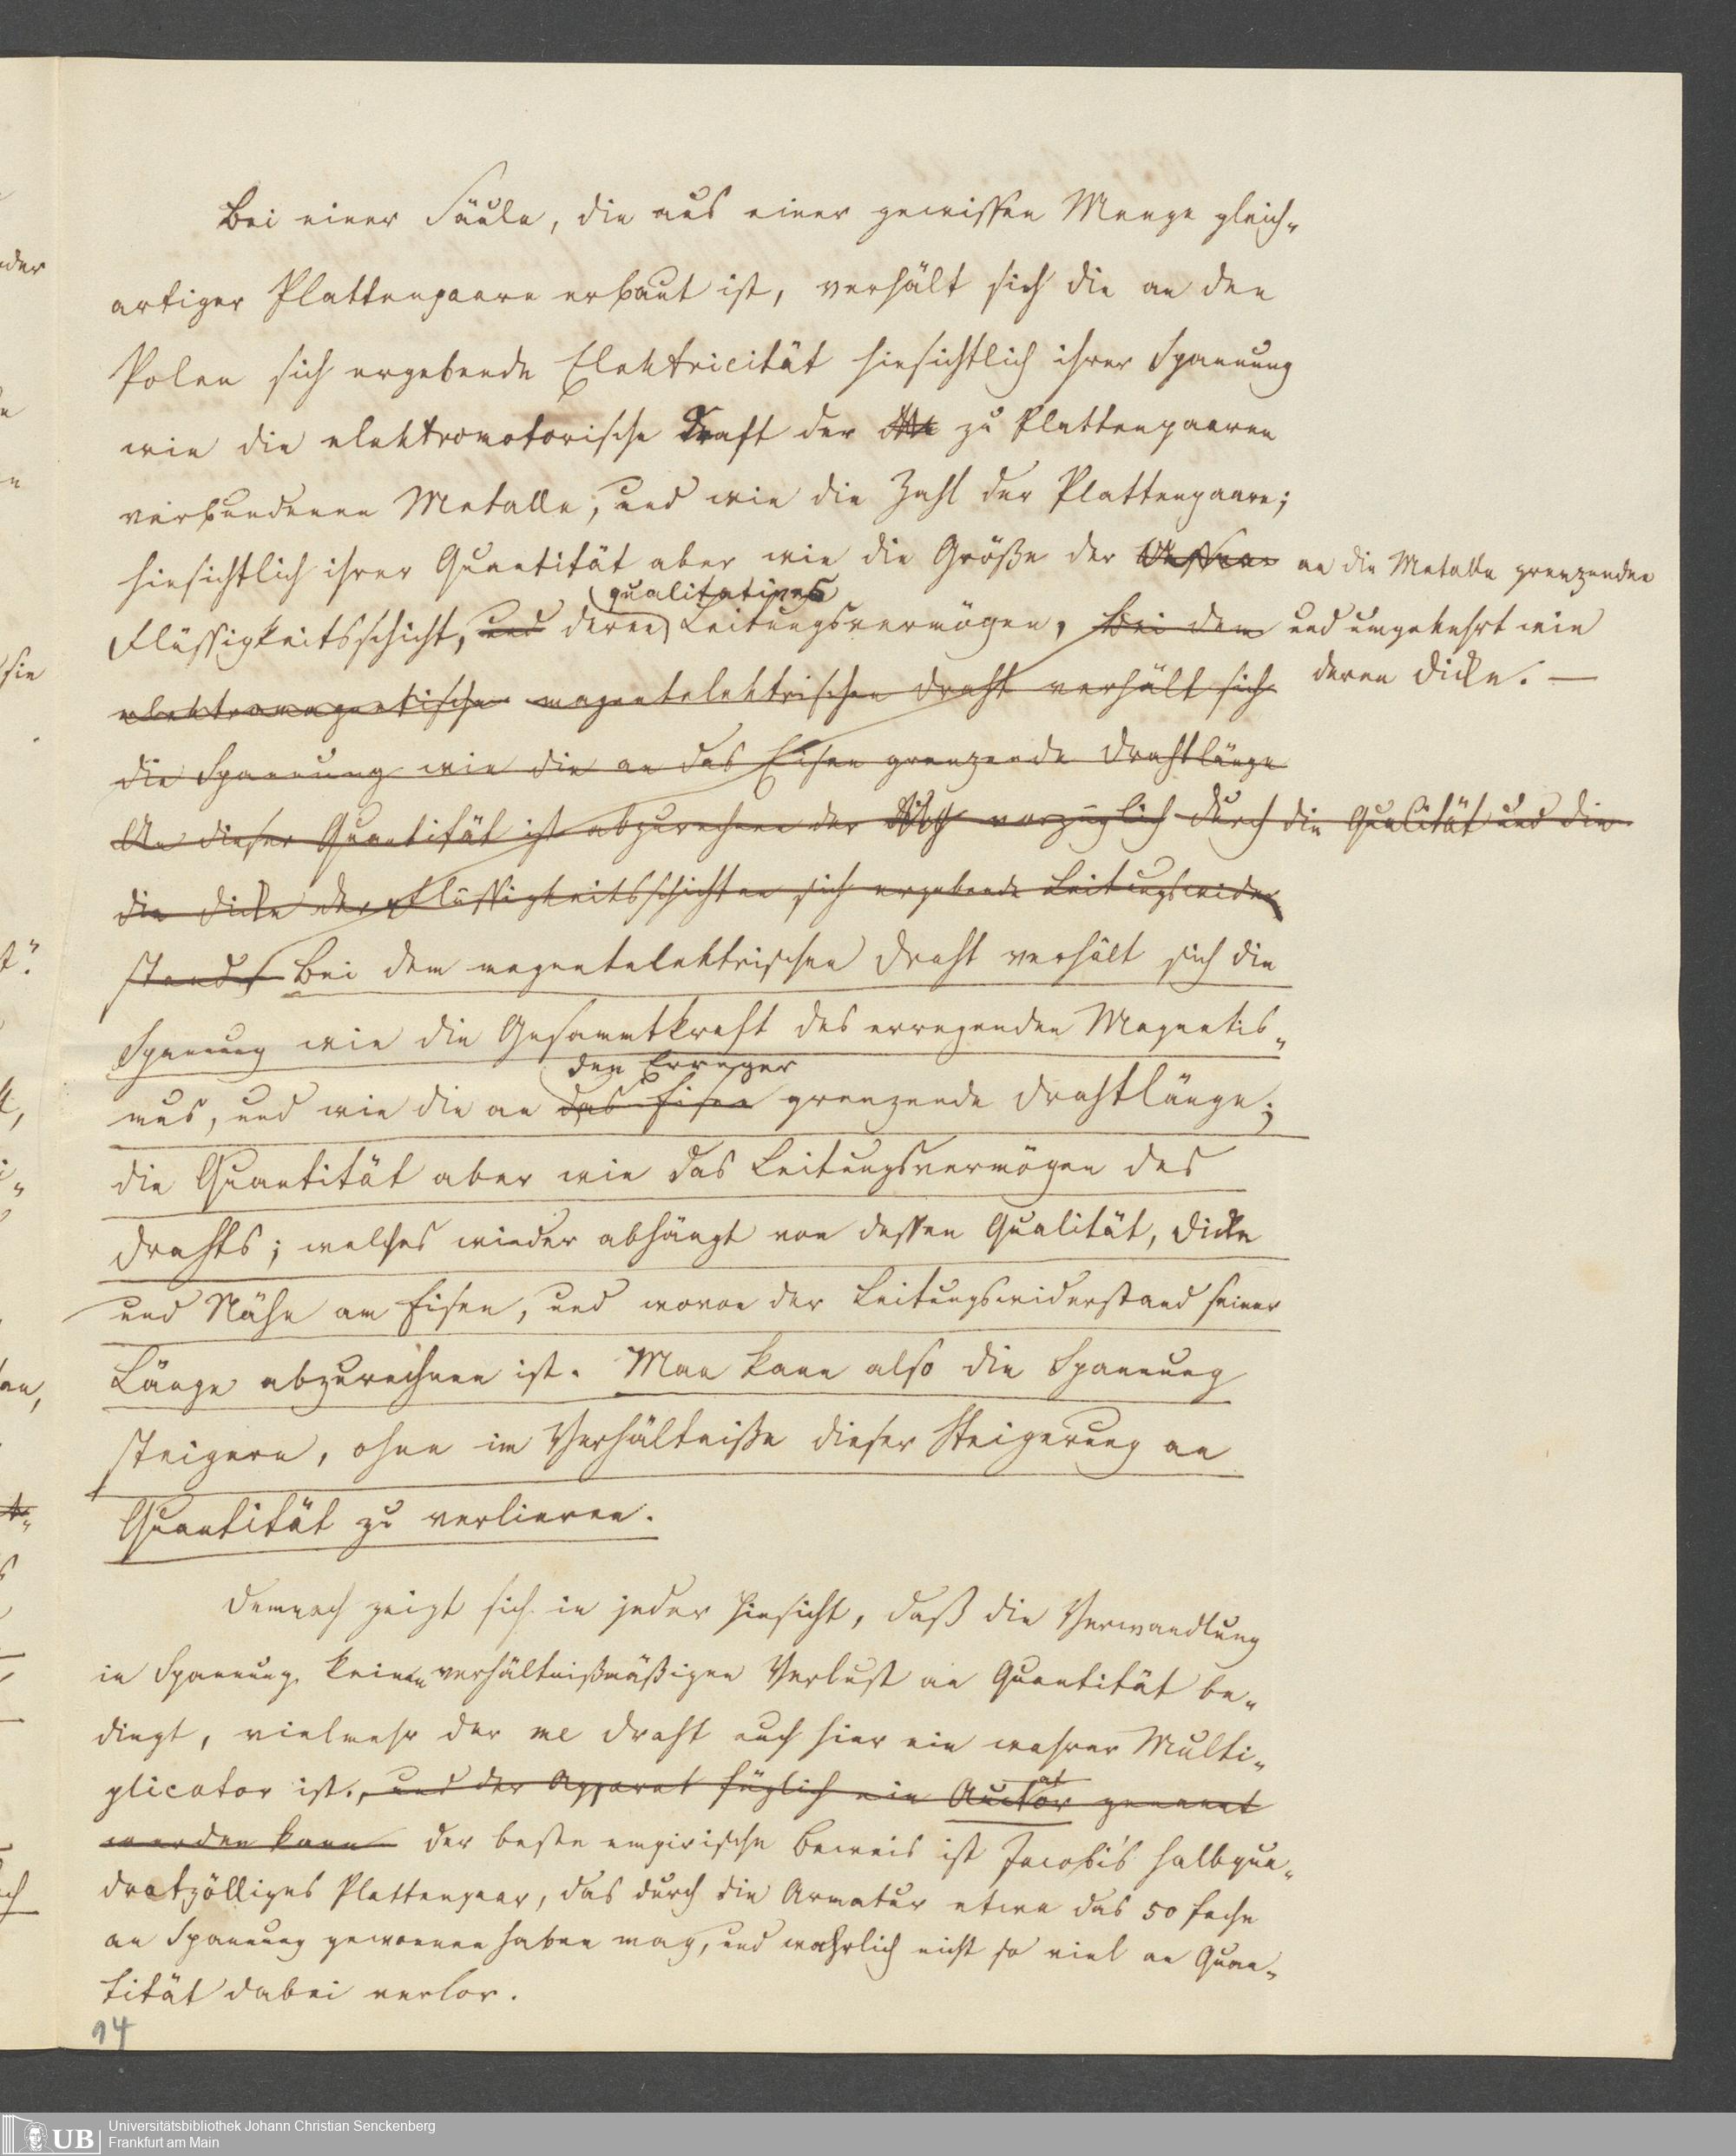 Bei einer Säule, die aus einer gewissen Menge gleich-
artiger Plattenpaare erbaut ist, verhält sich die an den
Polen sich ergebende Elektricität hinsichtlich ihrer Spannung
wie die elektromotorische Kraft der zu Plattenpaaren
verbundenen Metalle, und wie die Zahl der Plattenpaare;
hinsichtlich ihrer Quantität aber wie die Größe der an die Metalle grenzenden
qualitatives
Flüssigkeitsschicht, und deren Leitungsvermögen, bei dem und umgekehrt wie
elektromagnetische magnetelektrischen Draht verhält sich deren Dicke. —
die Spannung wie die an das Eisen grenzende Drahtlänge
An dieser Quantität ist abzurechnen der vorzüglich durch die Qualität und die
die Dicke der Flüssigkeitsschichten sich ergebende Leitungswider
stand. Bei dem magnetelektrischen Draht verhält sich die
Spannung wie die Gesammtkraft des erregenden Magnetis-
den Erreger
mus, und wie die an das Eisen grenzende Drahtlänge;
die Quantität aber wie das Leitungsvermögen des
Drahts; welches wieder abhängt von dessen Qualität, Dicke
und Nähe am Eisen, und wovon der Leitungswiderstand seiner
Länge abzurechnen ist. Man kann also die Spannung
steigern, ohne im Verhältniße dieser Steigerung an
Quantität zu verlieren.
Demnach zeigt sich in jeder Hinsicht, daß die Verwandlung
in Spannung keinen verhältnißmäßigen Verlust an Quantität be-
dingt, vielmehr der me Draht auch hier ein wahrer Multi-
plicator ist., und der Apparat füglich ein Auctor genannt
werden kann der beste empirische Beweis ist Jacobi's halbqua-
dratzölliges Plattenpaar, das durch die Armatur etwa das 50 fache
an Spannung gewonnen haben mag, und wahrlich nicht so viel an Quan-
tität dabei verlor.
94
UB Universitätsbibliothek Johann Christian Senckenberg
Frankfurt am Main